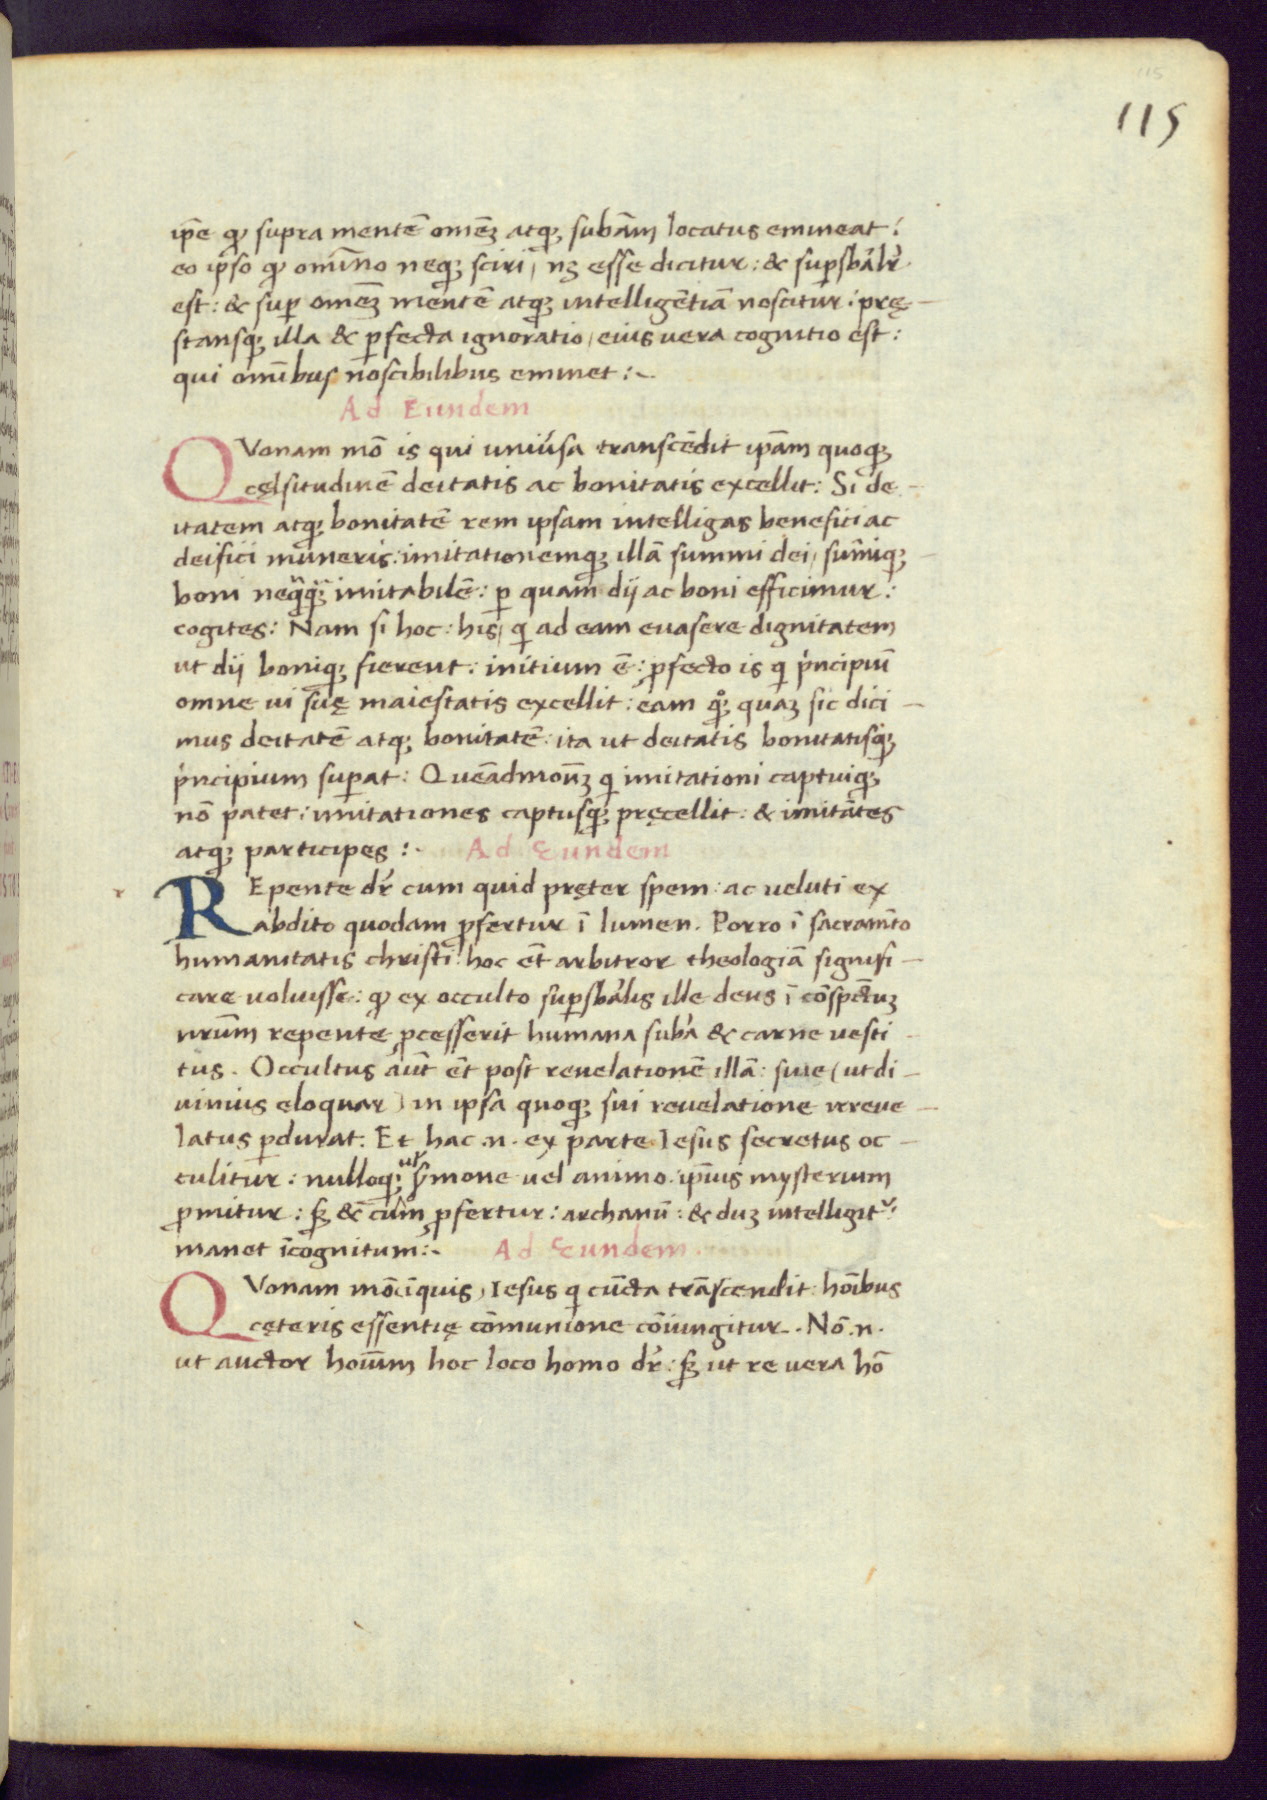 115
115
ip̄e ꝙ supra mentē omēꝫ atqꝫ subām locatus emineat:
eo ip̄so ꝙ omīno neqꝫ sciri, nꝫ esse dicitur: & suꝑsbālr̄
est: & suꝑ omēꝫ mentē atqꝫ intelligētiā noscitur: prę-
stansqꝫ illa & ꝑfecta ignoratio, eius uera cognitio est:
qui omībus noscibilibus eminet:~
Ad Eundem
QVonam mō is qui uniūsa transcēdit ipām quoqꝫ
cęlsitudinē deitatis ac bonitatis excellit: Si de-
itatem atqꝫ bonitatē rem ipsam intelligas benefici ac
deifici muneris: imitationemqꝫ illā summi dei, sum̄iqꝫ-
boni neqq̄qꝫ imitabilē: ꝑ quam dij ac boni efficimur:
cogites: Nam si hoc: his, qi ad eam euasere dignitatem
ut dij boniqꝫ fierent: initium ē: ꝓfecto is qi pi̍ncipiū
omne ui suę maiestatis excellit: eam qͦꝫ quaꝫ sic dici-
mus deitatē atqꝫ bonitatē: ita ut deitatis bonitatisqꝫ
pi̍ncipium suꝑat: Queādmon̄ꝫ qi imitationi captuiqꝫ
nō patet: imitationes captusqꝫ pręcellit: & imitātes
atqꝫ participes:~ Ad Eundem
REpente dr̄ cum quid pręter spem: ac ueluti ex
abdito quodam ꝓfertur ī lumen. Porro ī sacramīto
humanitatis christi: hoc ēt arbitror theologiā signifi-
care uoluisse: ꝙ ex occulto suꝑsbālis ille deus ī cōspctuꝫ
nrūm repente ꝓcesserit humana subā & carne uesti-
tus. Occultus aūt ēt post reuelationē illā: siue (ut di-
uinius eloquar) in ipsa quoqꝫ sui reuelatione irreue-
latus ꝑdurat. Et hac .n. ex parte Iesus secretus oc-
culitur: nulloqꝫ ut s̄mone uel animo ip̄ius mysterium
ꝓmitur: sꝫ & cum ꝓfertur: archanū: & duꝫ intelligit᷑:
manet īcognitum:~ Ad Eundem
QVonam mō īquis, Iesus qi cūcta trāscendit: hoībus
cęteris essentię cōmunione cōiungitur. Nō .n.
ut auctor hoīum hoc loco homo dr̄: sꝫ ut re uera hō